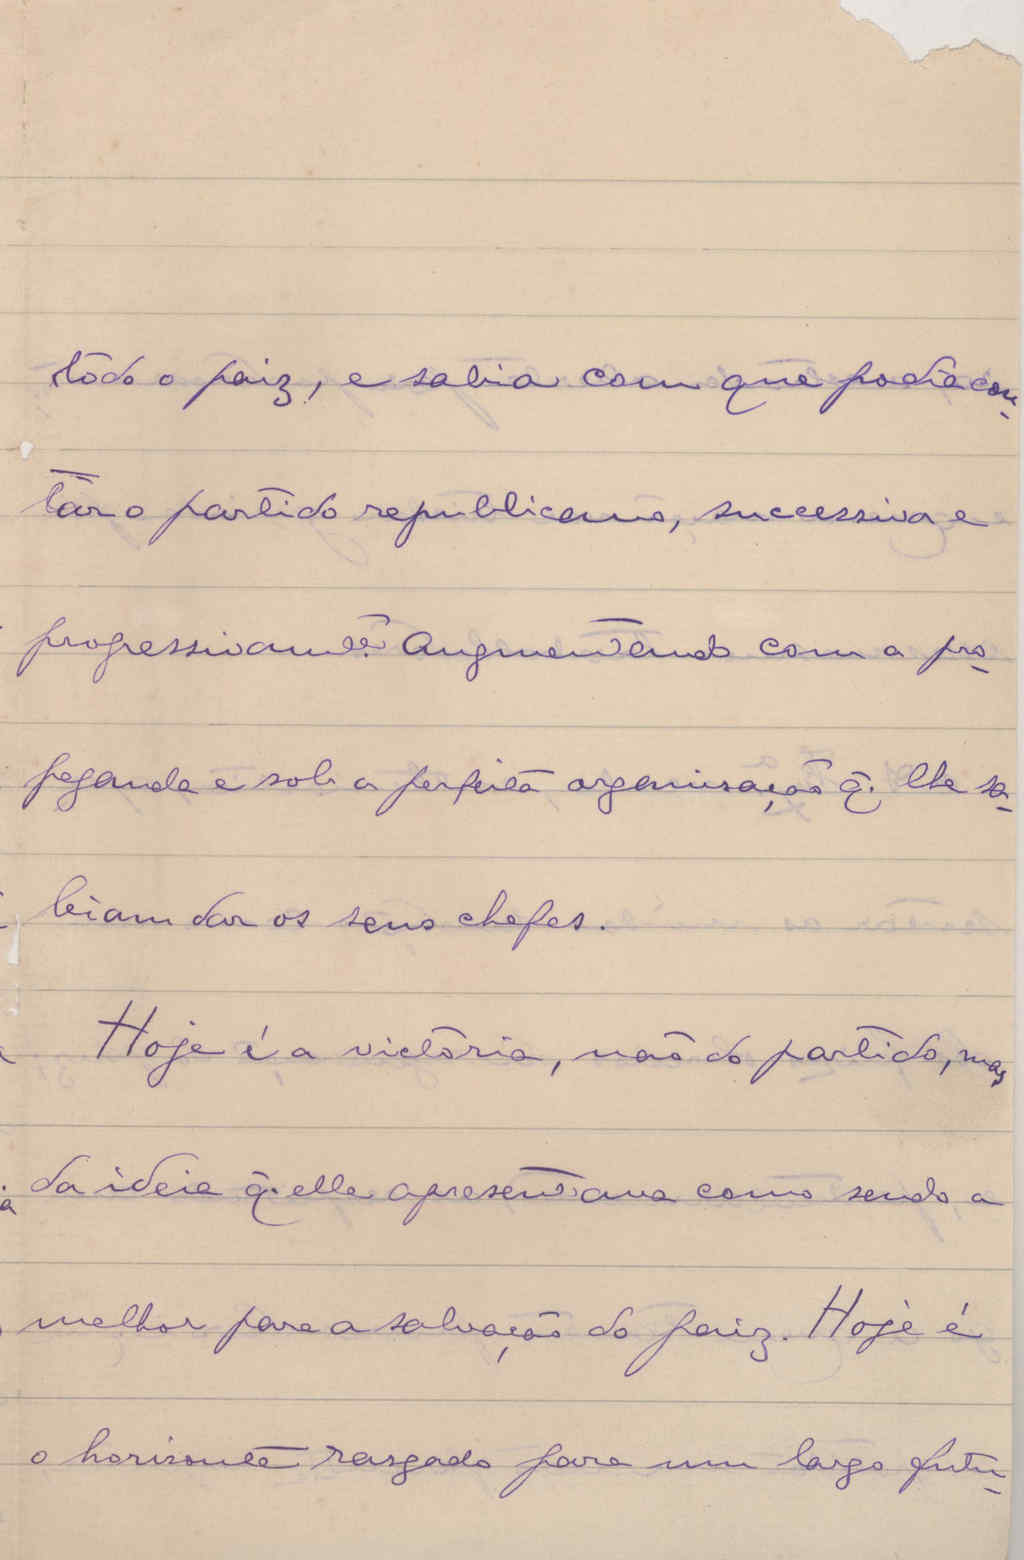 todo o paiz, e sabia com que podia con-
tar o partido republicano, successiva e
progressivamte. augmentando com a pro-
paganda e sob a perfeita organisação q. lhe sa-
biam dar os seus chefes.
Hoje é a victoria, não do partido, mas
da ideia q. elle apresentava como sendo a
melhor para a salvação do paiz. Hoje é
o horisonte rasgado para um largo futu-